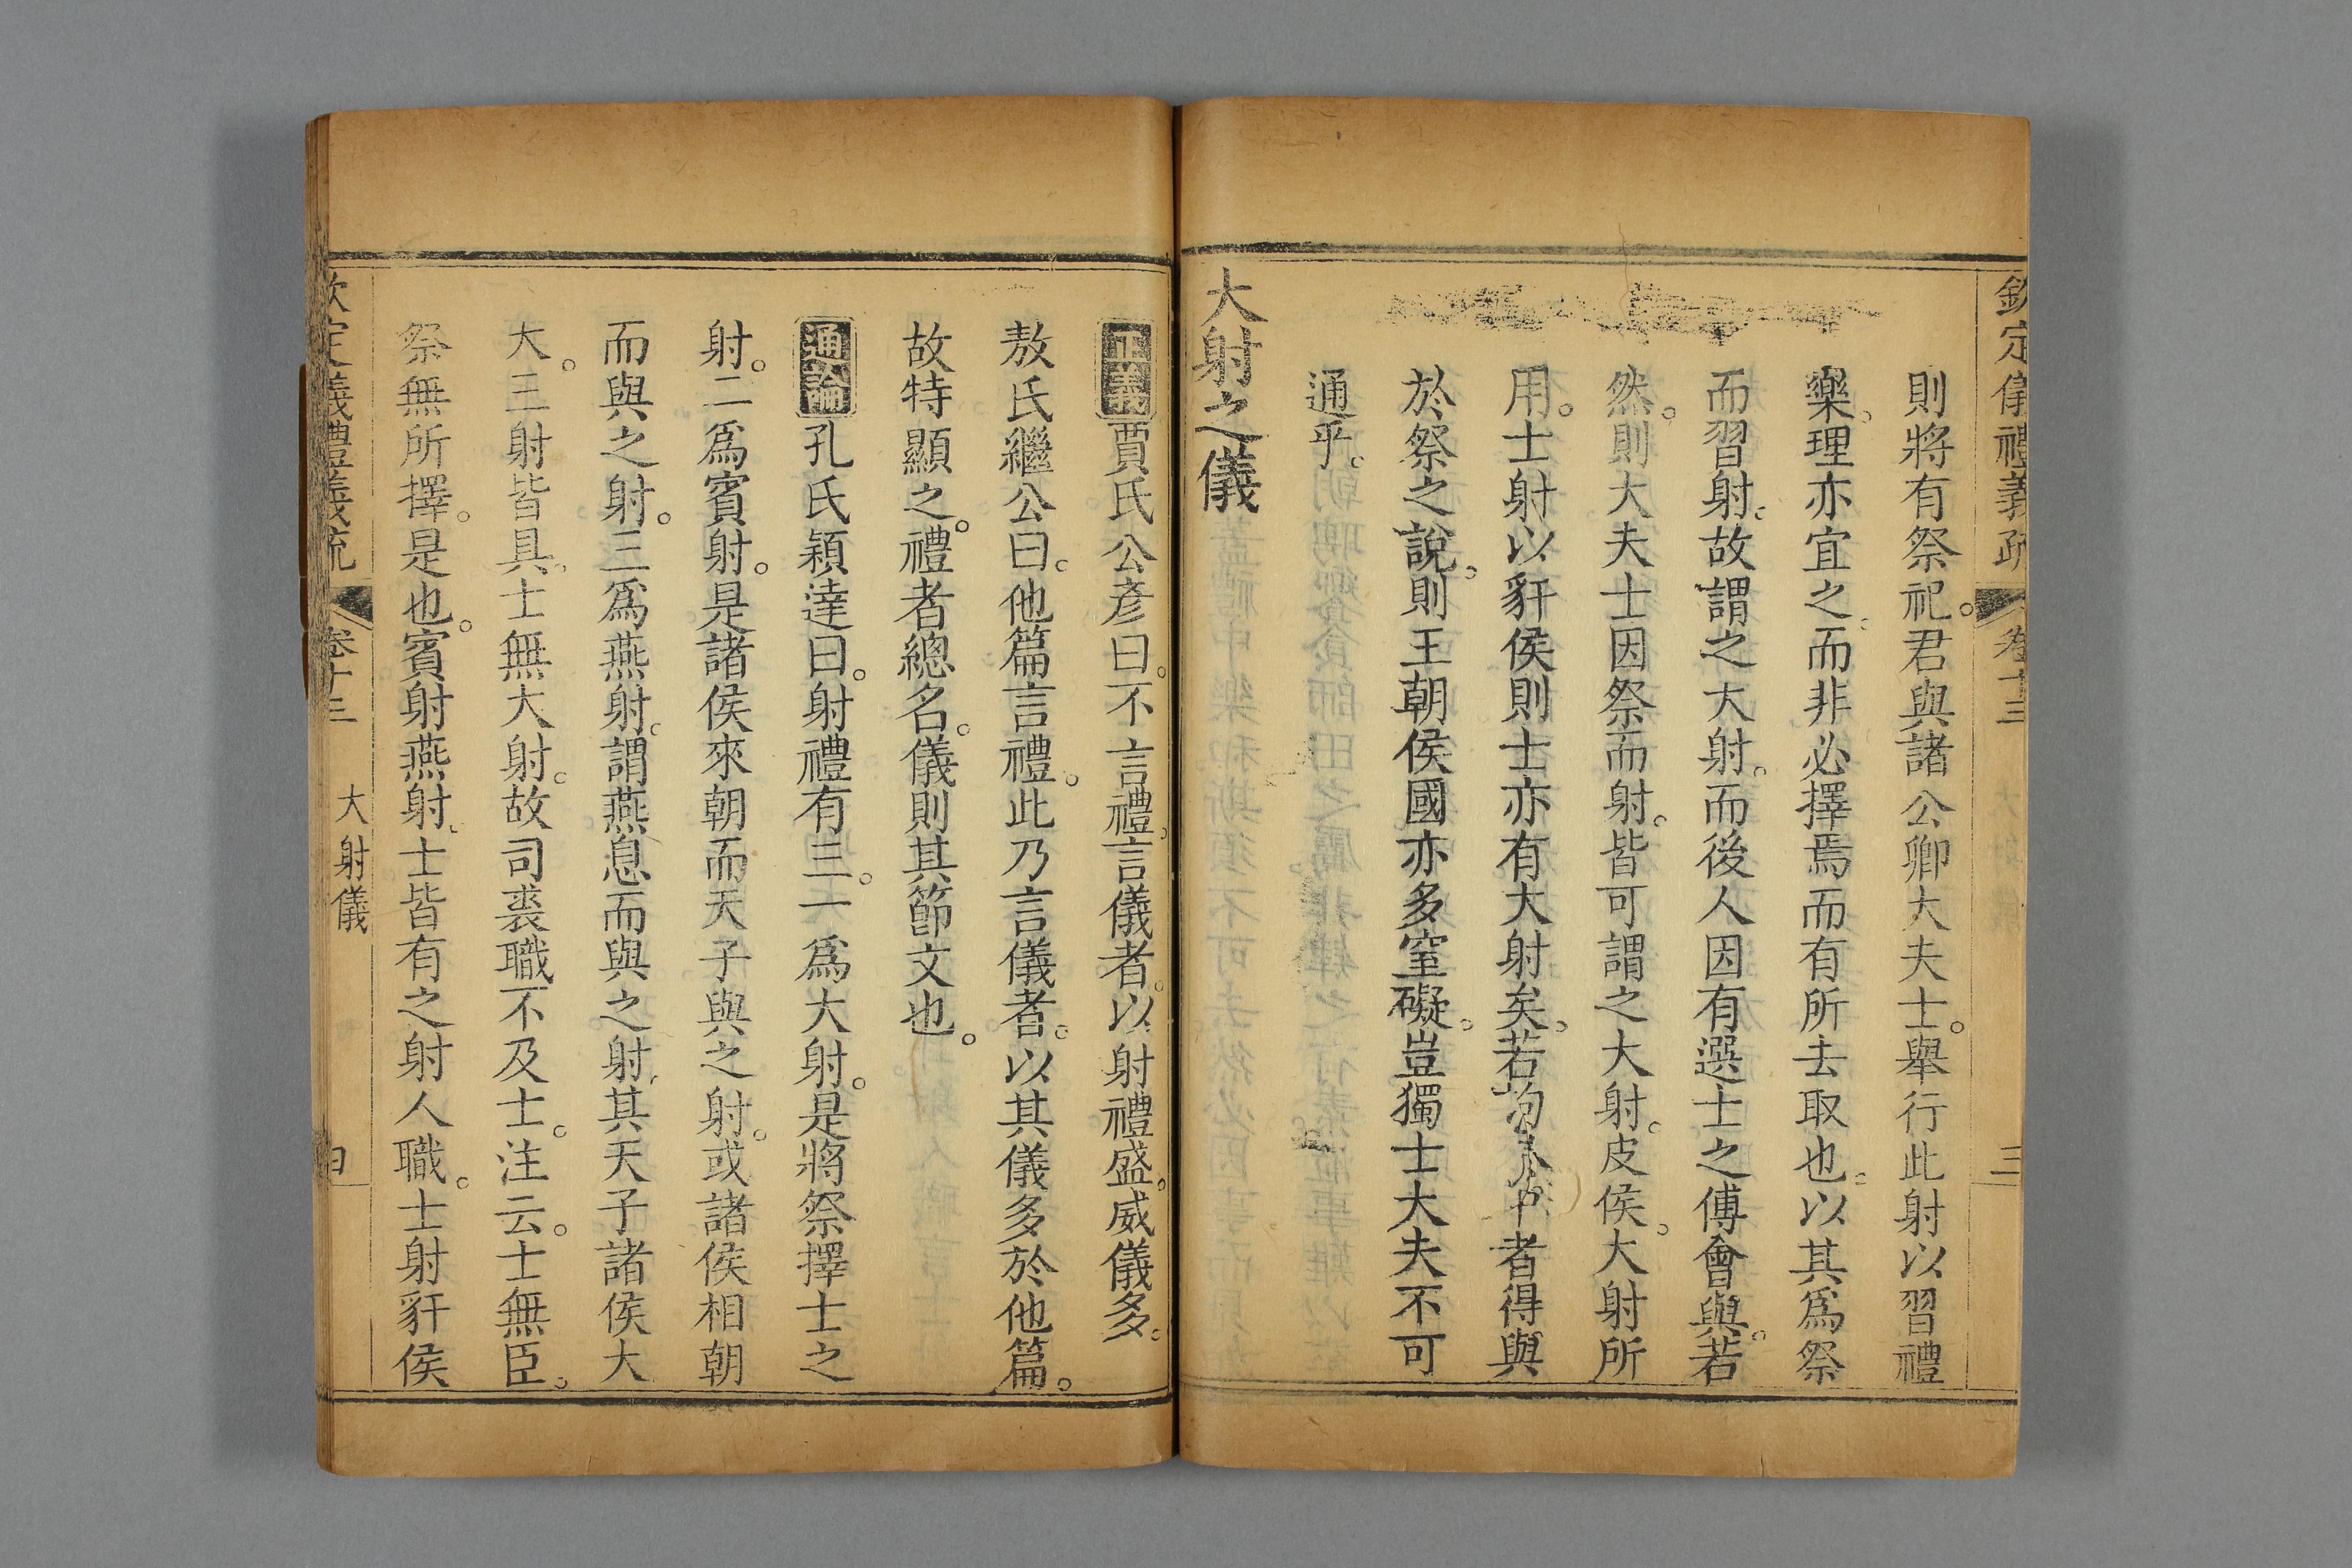 欽定儀禮義疏 卷十三 三
則將有祭祀。君與諸公卿大夫士。舉行此射以習禮
樂。理亦宜之。而非必擇焉而有所去取也。以其爲祭
而習射。故謂之大射。而後人因有選士之傅會與。若
然。則大夫士因祭而射。皆可謂之大射。皮侯。大射所
用。士射以豻侯則士亦有大射矣。若均者得與
於祭之說。則王朝侯國亦多窒礙。豈獨士大夫不可
通乎。
大射之儀
正義賈氏公彥曰。不言禮。言儀者。以射禮盛。威儀多。
敖氏繼公曰。他篇言禮。此乃言儀者。以其儀多於他篇。
故特顯之。禮者總名。儀則其節文也。
通論孔氏穎達曰。射禮有三。一爲大射。是將祭擇士之
射。二爲賓射。是諸侯來朝而天子與之射。或諸侯相朝
而與之射。三爲燕射。謂燕息而與之射。其天子諸侯大
夫。三射皆具。士無大射。故司裘職不及士。注云。士無臣。
祭無所擇。是也。賓射燕射。士皆有之射人職。士射豻侯
欽定儀禮義疏 卷十三 大射儀